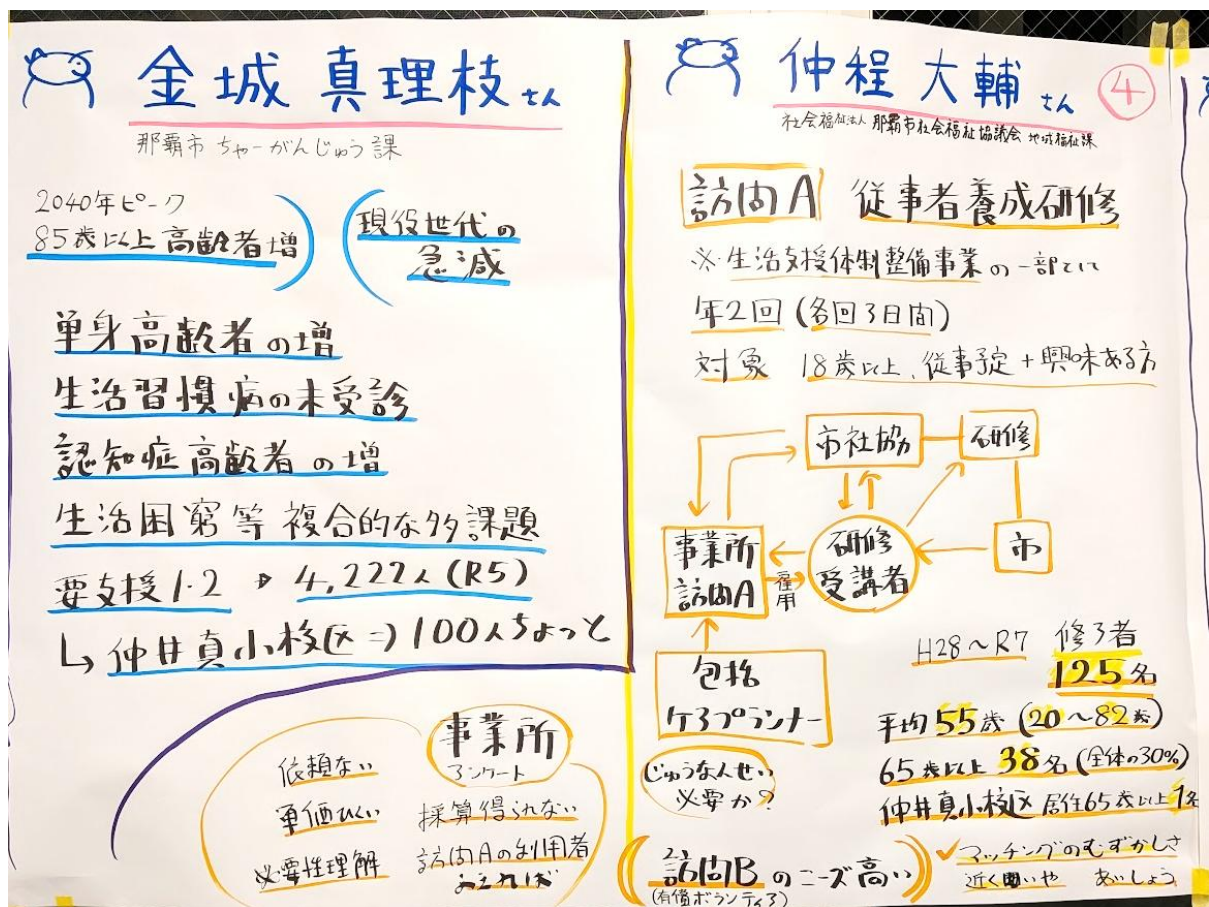 金城 真理枝 さん
那覇市 ちゃーがんじゅう課
2040年ピーク
85歳以上高齢者増
現役世代の
急減
単身高齢者の増
生活習慣病の未受診
認知症高齢者の増
生活困窮等 複合的な多課題
要支援1・2 ▶ 4,227人(R5)
↳ 仲井真小校区 ⇒ 100人ちょっと
事業所
アンケート
依頼ない
単価ひくい
採算得られない
必要性理解
訪問Aの利用者
ふえれば
仲程 大輔 さん
④
社会福祉法人 那覇市社会福祉協議会 地域福祉課
訪問A 従事者養成研修
※生活支援体制整備事業の一部として
年2回(各回3日間)
対象 18歳以上、従事予定+興味ある方
市社協
研修
事業所
訪問A
雇用
研修
受講者
市
包括
ケアプランナー
H28~R7 修了者
125名
平均55歳(20~82歳)
65歳以上38名(全体の30%)
仲井真小校区 居住65歳以上1名
じゅうなんせい
必要か?
訪問Bのニーズ高い
(有償ボランティア)
✓マッチングのむずかしさ
近く いや あいしょう